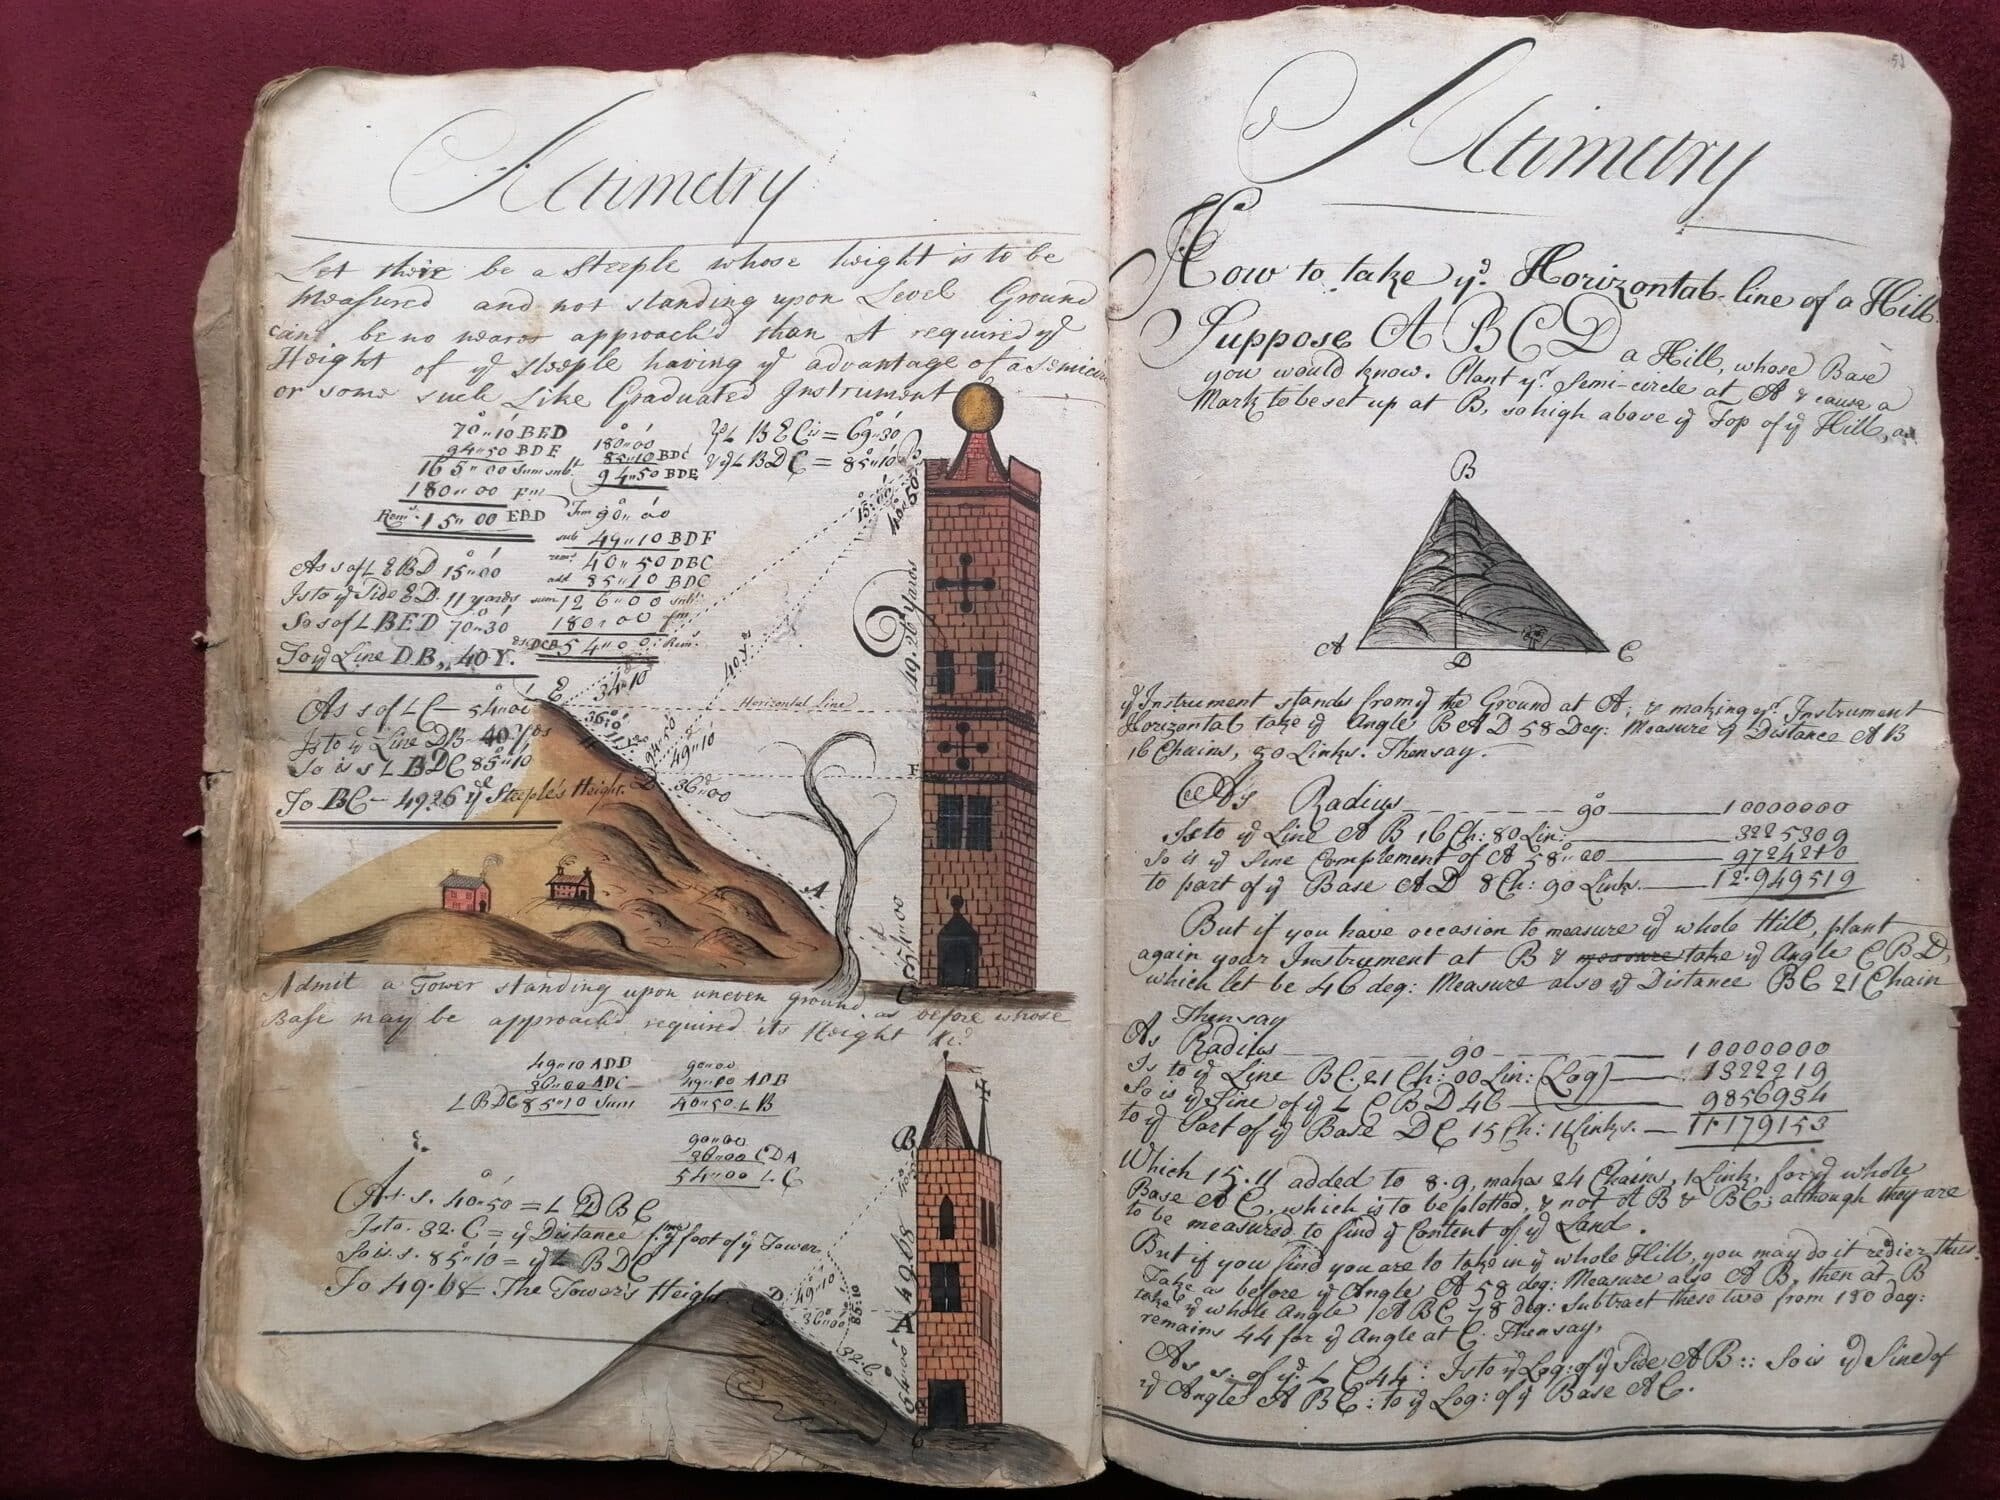 Altimetry
Let there be a Steeple whose height is to be
Measured and not standing upon Level Ground
can be no nearer approach'd than A required yᵉ
Height of yᵉ steeple having yᵉ advantage of a semicir
or some such Like Graduated Instrument
70"10 BED
94"50 BDE
165"00 Sum subᵗ
180"00 Fm
Remˢ 15"00 EBD
180"00
85"10 BDC
94"50 BDE
Fm 90"00
sub 49"10 BDF
rem 40"50 DBC
add 85"10 BDC
sum 126"00 subᵗ
180"00 fm
DCB 54"00 Rem.
yᵉ L BEC is = 69"30
& yᵉ L BDC = 85"10
As s of L EBD 15"00
Is to yᵉ Side ED. 11 yards
So s of L BED 70"30
To yᵉ Line DB,, 40 Y.
As s of L C - 54"00
Is to yᵉ Line DB 40 Yds
So is s L BDC 85"10
To BC - 49.26 yᵉ Steeple's Height.
B
15"00
40"50
49.26 Yards
40 Yˢ
E
34"10
Horizontal Line
36"0
94"50
49"10
D
36"00
F
A
54"00
C
Admit a Tower standing upon uneven ground, as before whose
Base may be approach'd required its Height &c.
49"10 ADB
36"00 ADC
L BDC 85"10 Sum
90"00
49"10 ADB
40"50 L B
90"00
36"00 CDA
54"00 L C
As. s. 40"50 = L DBC
Is to. 32. C = yᵉ Distance fm yᵉ foot of yᵉ Tower
So is. s. 85"10 = yᵉ L BDC
To 49.68 The Tower's Height
B
49.68
D
49"10
36"00
85"10
A
32. C
54"00
C
51
Altimetry
How to take yᵉ Horizontal line of a Hill.
Suppose A B C D a Hill, whose Base
you would know. Plant yʳ Semi-circle at A & cause a
Mark to be set up at B, so high above yᵉ Top of yᵉ Hill, as
B
A
D
C
yᵉ Instrument stands from yᵉ the Ground at A; & making yʳ Instrument
Horizontal take yᵉ Angle B A D 58 Deg: Measure yᵉ Distance A B
16 Chains, 80 Links. Then say.
As Radius 90 10000000
Is to yᵉ Line A B 16 Ch: 80 Lin: 3225309
So is yᵉ Sine Complement of A 58"00 9724210
to part of yᵉ Base A D 8 Ch: 90 Links. 12.949519
But if you have occasion to measure yᵉ whole Hill, plant
again your Instrument at B & measure take yᵉ Angle C B D,
which let be 46 deg: Measure also yᵉ Distance BC 21 Chain
Then say
As Radius 90 10000000
Is to yᵉ Line BC. 21 Ch: 00 Lin: (Log) 1322219
So is yᵉ Sine of yᵉ L C B D 46 9856934
to yᵉ Part of yᵉ Base DC 15 Ch: 11 Links. 11.179153
Which 15.11 added to 8.9, makes 24 Chains, 1 Link, for yᵉ whole
Base A C, which is to be plotted, & not A B & B C; although they are
to be measured to find yᵉ Content of yᵉ Land.
But if you find you are to take in yᵉ whole Hill, you may do it redier thus.
Take as before yᵉ Angle A 58 deg: Measure also A B, then at B
take yᵉ whole Angle A B C 78 deg: Subtract these two from 180 deg:
remains 44 for yᵉ Angle at C. Then say,
As s. of yᵉ. L C 44: Is to yᵉ Log: of yᵉ Side A B :: So is yᵉ Sine of
yᵉ Angle A B C: to yᵉ Log: of yᵉ Base A C.